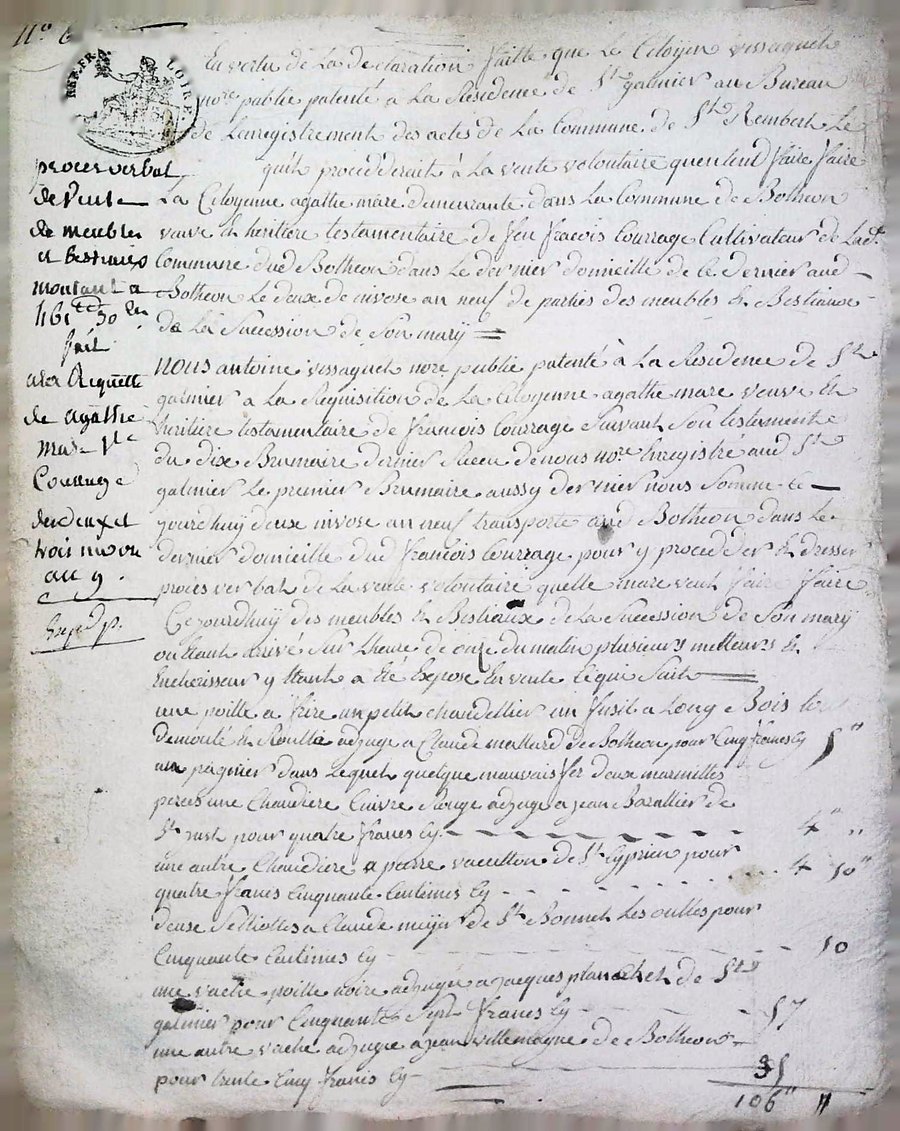 N° 6
REP. FRA. LOIRE.
En vertu de La declaration faitte que Le Citoyen vissaguet
nore public patenté à La Residence de St galmier au Bureau
de Lenregistrement des actes de La Commune de St Rembert Le
quil procedderait à La vente volontaire quentend faire faire
La Citoyenne agathe mare demeurante dans La Commune de Botheon
veuve et heritiere testamentaire de feu fracois Courrage Cultivateur de Lade
Commune dud Botheon dans Le dernier domicille de Ce dernier aud
Botheon Le deux de nivose an neuf de parties des meubles et Bestiaux
de La Succession de Son mary
proces verbal
de Vente
de meubles
et bestiaux
montant a
461 50
fait
a la Requette
de Agathe
mare Ve
Courrage
des deux et
trois nivose
an 9.
Exp d p.
nous antoine vissaguet nore public patenté à La Residence de St
galmier a La Requisition de La Citoyenne agathe mare veuve et
heritiere testamentaire de francois Courrage Suivant Son testament
du dix Brumaire dernier Receu de nous nore Enregistré aud St
galmier Le premier Brumaire aussy dernier nous Somme Ce
jourdhuy deux nivose an neuf transporte aud Botheon dans Le
dernier domicille dud francois Courrage pour y procedder et dresser
proces verbal de La vente volontaire quelle mare veut faire faire
Cejourdhuy des meubles et Bestiaux de La Succession de Son mary
ou Etant arrivé Sur Lheure de onze du matin plusieurs metteurs et
Encherisseur y Etant a Eté Exposé En vente Ce qui Suit
une poille a frire un petit chandellier un fusil a Long Bois tout
demonté et Rouillé adjugé a Claude mallard de Botheon pour Cinq francs Cy 5"
un pagnier dans Lequel quelque mauvais fer deux marmittes
perces une Chaudiere Cuivre Rouge adjugé a jean Barallier de
St just pour quatre francs Cy 4" "
une autre Chaudiere a pierre vacullon de St Cyprien pour
quatre francs Cinquante Centimes Cy 4 50"
deux Seilliottes a Claude meyer de St Bonnet Les oulles pour
Cinquante Centimes Cy 50
une vache poille noire adjugée a jacques planchet de St
galmier pour Cinquante Sept francs Cy 57
une autre vache adjugée a jean villemagne de Botheon
pour trente Cinq francs Cy 35
106" "